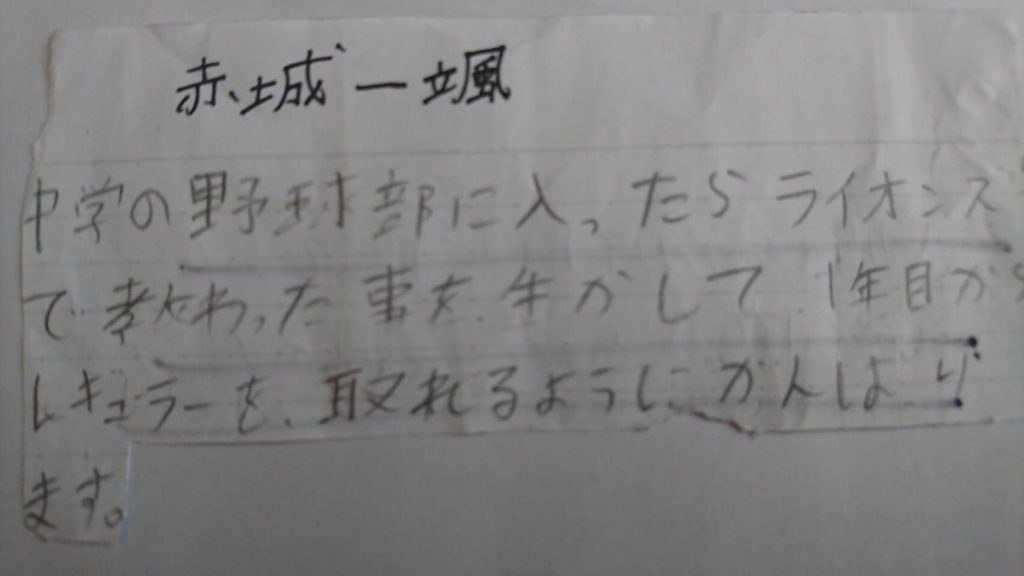 赤城一颯
中学の野球部に入ったらライオンズ
で教わった事を生かして1年目から
レギュラーを、取れるようにがんばり
ます。